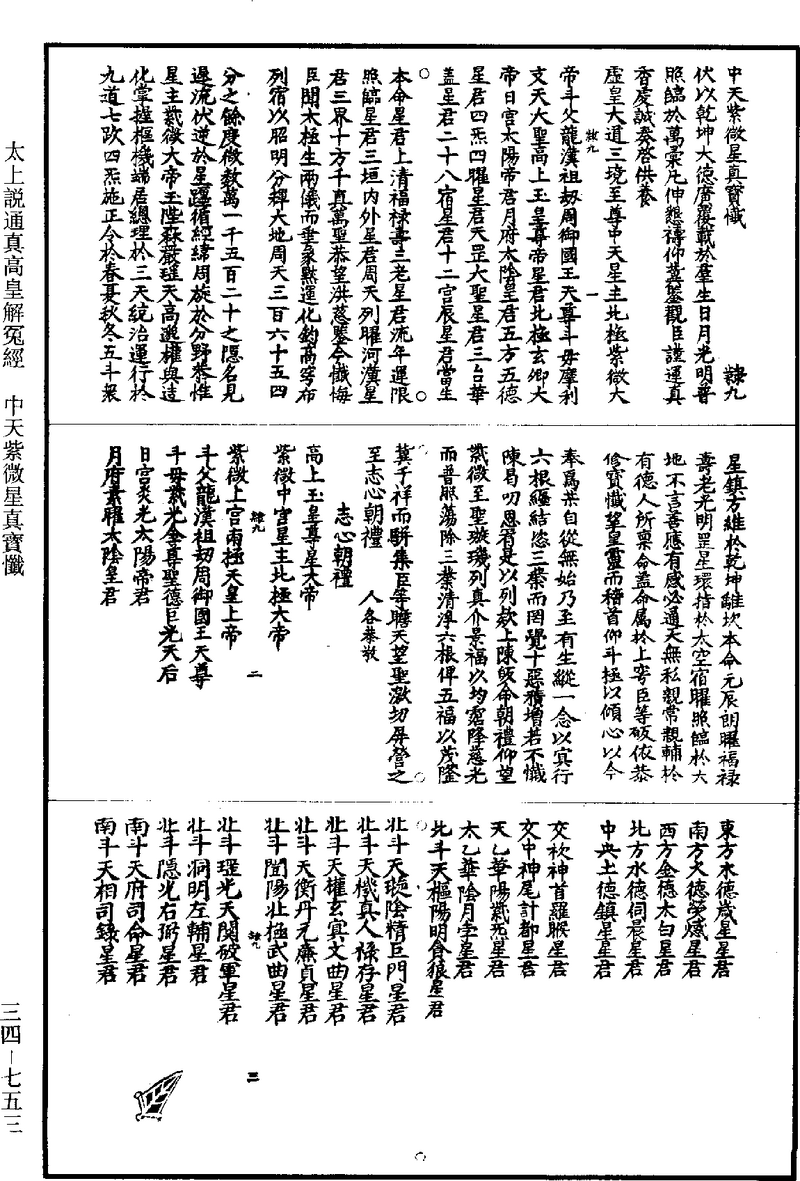 中天紫微星真寶懺　隸九
伏以乾坤大德廣覆載於羣生日月光明普
照臨於萬彙凡伸懇禱仰冀鑒觀臣謹運真
香虔誠奏啓供養
虛皇大道三境至尊中天星主北極紫微大
隸九　一
帝斗父龍漢祖劫周御國王天尊斗母摩利
支天大聖高上玉皇尊帝星君北極玄卿大
帝日宮太陽帝君月府太陰皇君五方五德
星君四炁四曜星君天罡大聖星君三台華
蓋星君二十八宿星君十二宮辰星君當生
本命星君上清福祿壽三老星君流年運限
照臨星君三垣內外星君周天列曜河漢星
君三界十方千真萬聖恭望洪慈鑒今懺悔
臣聞太極生兩儀而垂象默運化鈞高穹布
列宿以昭明分繹大地周天三百六十五四
分之餘慶微數萬一千五百二十之隱名見
遲流伏逆於星躔循經緯周旋於分野恭惟
星主紫微大帝玉陛森嚴璀天高邈權與造
化掌握樞機端居總理於三天統治運行於
九道七政四炁施正令於春夏秋冬五斗衆
星鎮方維於乾坤離坎本命元辰朗曜福祿
壽老光明罡星環指於太空宿曜照臨於大
地不言善應有感必通天無私親常親輔於
有德人所稟命盖命屬於上穹臣等皈依恭
修寶懺挈皇靈而稽首仰斗極以傾心以今
奉爲某自從無始乃至有生縱一念以冥行
六根纏結恣三業而罔覺十惡積增若不懺
陳曷叨恩宥是以列欵上陳皈命朝禮仰望
紫微至聖璇璣列真介景福以均霑降慈光
而普照蕩除三業清淨六根俾五福以茂隆
冀千祥而駢集臣等瞻天望聖激切屏營之
至志心朝禮　人各恭敬
志心朝禮
高上玉皇尊星大帝
紫微中宮星主北極大帝
隸九　二
紫微上宮兩極天皇上帝
斗父龍漢祖劫周御國王天尊
斗母紫光金尊聖德巨光天后
日宮炎光太陽帝君
月府素曜太陰皇君
東方木德歲星星君
南方火德熒惑星君
西方金德太白星君
北方水德伺辰星君
中央土德鎮星星君
交初神首羅睺星君
交中神尾計都星君
天乙華陽紫炁星君
太乙華陰月孛星君
北斗天樞陽明貪狼星君
北斗天璇陰精巨門星君
北斗天機真人祿存星君
北斗天權玄冥文曲星君
北斗天衡丹元廉貞星君
北斗闓陽北極武曲星君
隸九　三
北斗瑶光天關破軍星君
北斗洞明左輔星君
北斗隱光右弼星君
南斗天府司命星君
南斗天相司錄星君
太上説通真高皇解冤經　中天紫微星真寶懺
三四－七五三